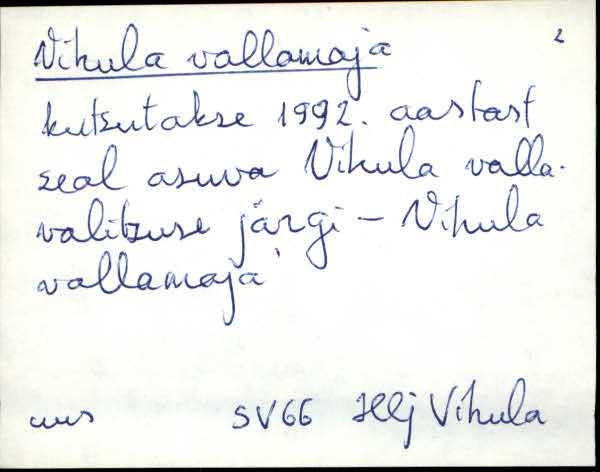 Vihula vallamaja 2
kutsutakse 1992. aastast
seal asuva Vihula valla-
valitsuse järgi – Vihula
vallamaja
uus SV66 Hlj Vihula